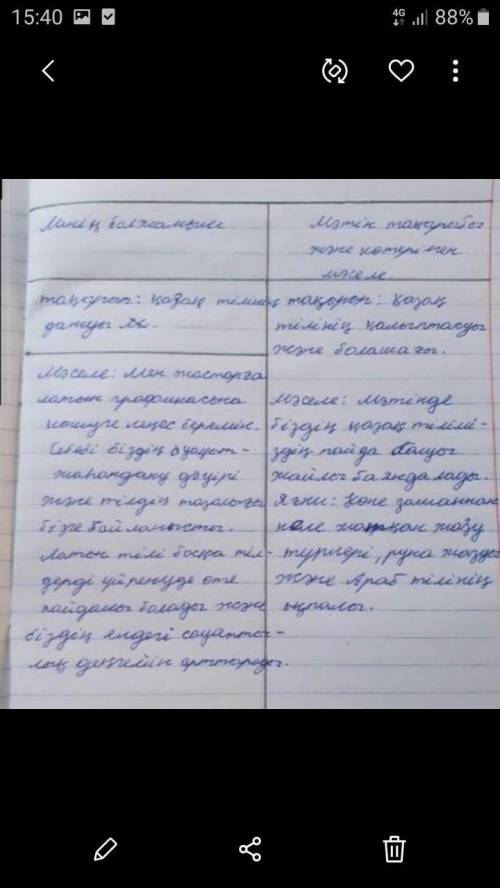 15:40
4G
88%
Менің болжамым
Мәтін тақырыбы
және көтерілген
мәселе.
тақырып: қазақ тілінің
дамуы
тақырып: Қазақ
тілінің қалыптасуы
және болашағы.
Мәселе: Мен жастарға
латын графикасына
көшуге кеңес беремін.
Себебі біздің уақыт-
жаһандану дәуірі
және тілдің тазалығы
бізге байланысты.
Латын тілі басқа тіл-
дерді үйренуде өте
пайдалы болады және
біздің елдегі сауатты-
лық деңгейін арттырады.
Мәселе: Мәтінде
біздің қазақ тілімі-
здің пайда болуы
жайлы баяндалады.
Яғни: Көне заманнан
келе жатқан жазу
түрлері, руна жазуы
және Араб тілінің
ықпалы.